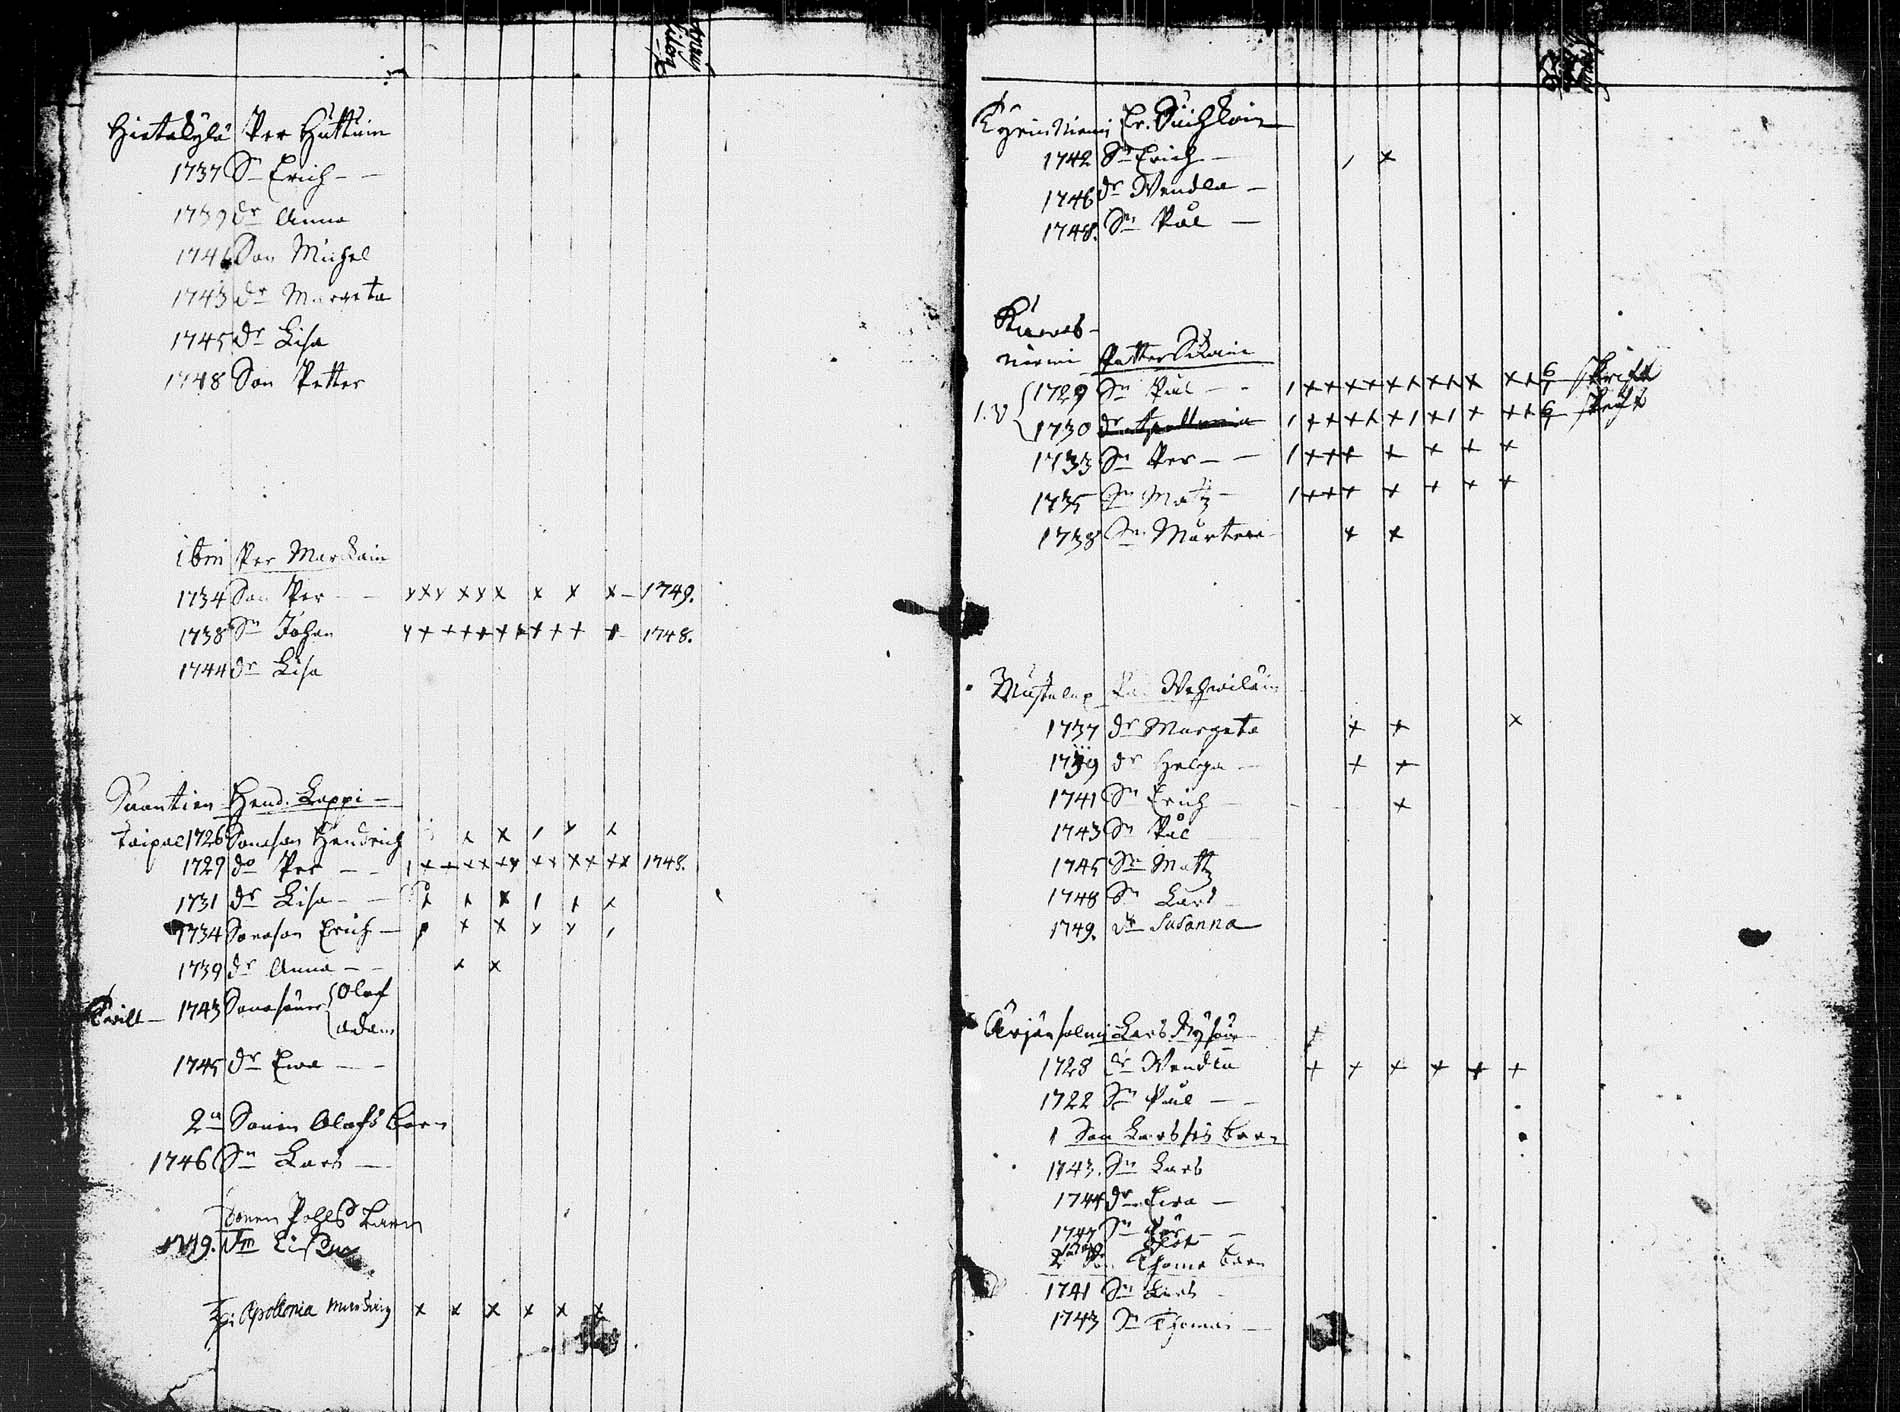 Hietakylä Per Huttuin
1737 Sn Erich - -
1739 dr Anna
1741 Son Michel
1743 dr Margeta
1745 dr Lisa
1748 Son Petter
ibm Per Markain
1734 Son Per - - x x x x x x x x x - 1749.
1738 Sn Johan x x x x x x x x x x x 1748.
1744 dr Lisa
Suontien Hend. Lappi -
taipal 1726 Sonason Hendrich x x , x x
1729 do Per - - 1 x x x x x x x x x x x x 1748.
1731 dr Lisa - - x x x 1 x x
1734 Sonason Erich - x x x x ,
1739 dr Anna - - x x
Twill - 1743 Sonasöner { Olof
Adam
1745 dr Ewa - -
2a Sonen Olofs barn
1746 Sn Lars -
Sonen Pohls barn
1749. dr Lisa
Apollonia x x x x x x
Kyrinniemi Er.
1742 Sn Erich - , x
1746 dr Wendla -
1748. Sn Pål -
Kuares-
niemi Petter Sikain
1729 Sn Pål - - 1 x x x x x x x x x x x 6
1730 dr Apollonia 1 x x x x x 1 x 1 x x x 6
1733 Sn Per - - 1 x x x x x x x
1735 Sn Matz - 1 x x x x x x x
1738 Sn Mårten x x
Mustalax Wehwiläin
1737 dr Margeta x x x
1739 dr Helga - x x
1741 Sn Erich - x
1743 Sn Pål
1745 Sn Matz
1748 Sn Lars
1749. dr Susanna
Ärjänsalmi Lars x
1728 dr Wendla x x x x x x
1722 Sn Pål - -
1 Son Larssis barn
1743. Sn Lars
1744 dr Ewa -
1747 Sn Pår - -
2 Son Thoma barn
1741 Sn Lars -
1743 Sn Thomas -